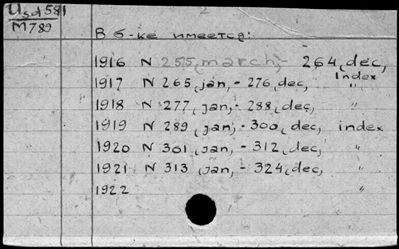 Usd 581
M789
В б-ке имеется:
1916 N 255 (march) - 264 (dec,
1917 N 265 (jan, - 276, dec, index
1918 N 277 (jan, - 288, dec, "
1919 N 289 (jan, - 300, dec, index
1920 N 301 (jan, - 312, dec, "
1921 N 313 (jan, - 324, dec, "
1922 "